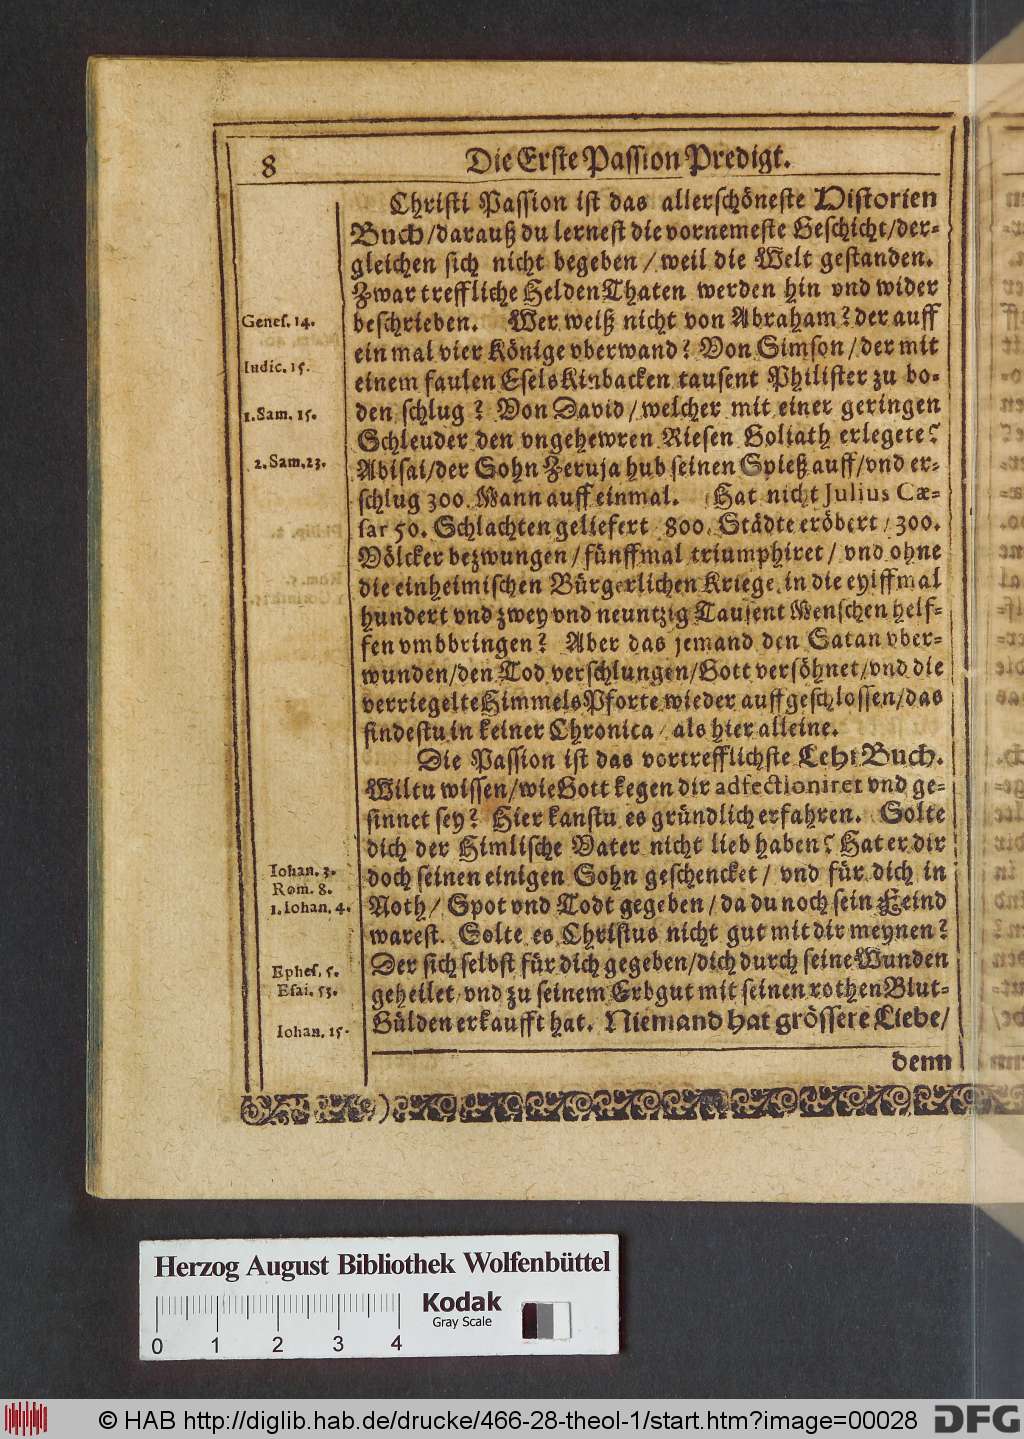 8
Die Erste Passion Predigt.
Christi Passion ist das allerschöneste Historien
Buch / darauß du lernest die vornemeste Geschicht / der-
gleichen sich nicht begeben / weil die Welt gestanden.
Zwar treffliche Helden Thaten werden hin vnd wider
Genes. 14.
beschrieben. Wer weiß nicht von Abraham? der auff
ein mal vier Könige vberwand? Von Simson / der mit
Iudic. 15.
einem faulen Esels Kinbacken tausent Philister zu bo-
1. Sam. 15.
den schlug? Von David / welcher mit einer geringen
Schleuder den vngehewren Riesen Goliath erlegete?
2. Sam. 23.
Abisai / der Sohn Zeruja hub seinen Spieß auff / vnd er-
schlug 300. Mann auff einmal. Hat nicht Julius Cæ-
sar 50. Schlachten geliefert / 800. Städte eröbert / 300.
Völcker bezwungen / fünffmal triumphiret / vnd ohne
die einheimischen Bürgerlichen Kriege, in die eyiffmal
hundert vnd zwey vnd neuntzig Tausent Menschen helf-
fen vmbbringen? Aber das jemand den Satan vber-
wunden / den Tod verschlungen / Gott versöhnet / vnd die
verriegelte Himmels Pforte wieder auffgeschlossen / das
findestu in keiner Chronica / als hier alleine.
Die Passion ist das vortrefflichste Lehr Buch.
Wiltu wissen / wie Gott kegen dir adfectioniret vnd ge-
sinnet sey? Hier kanstu es gründlich erfahren. Solte
dich der Himlische Vater nicht lieb haben? Hat er dir
Iohan. 3.
doch seinen einigen Sohn geschencket / vnd für dich in
Rom. 8.
1. Iohan. 4.
Noth / Spot vnd Todt gegeben / da du noch sein Feind
warest. Solte es Christus nicht gut mit dir meynen?
Ephes. 5.
Der sich selbst für dich gegeben / dich durch seine Wunden
Esai. 53.
geheilet / vnd zu seinem Erbgut mit seinen rothen Blut-
Iohan. 15.
Gülden erkaufft hat. Niemand hat grössere Liebe /
denn
Herzog August Bibliothek Wolfenbüttel
Kodak
Gray Scale
0 1 2 3 4
© HAB http://diglib.hab.de/drucke/466-28-theol-1/start.htm?image=00028
DFG